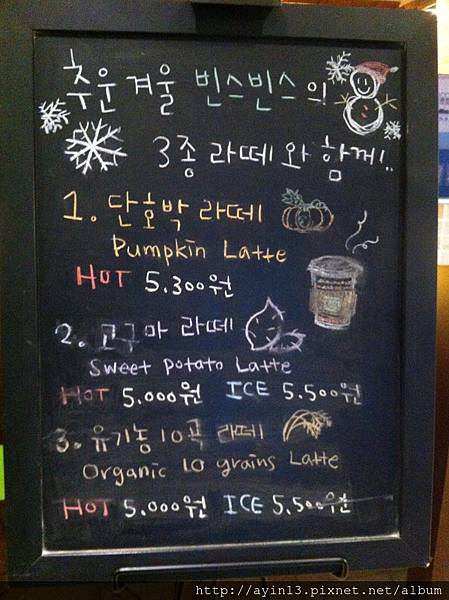 추운 겨울 빈스빈스의
3종 라떼와 함께!..
1. 단호박 라떼
Pumpkin Latte
HOT 5.300원
2. 고구마 라떼
sweet potato Latte
HOT 5.000원 ICE 5.500원
3. 유기농 10곡 라떼
Organic 10 grains Latte
HOT 5.000원 ICE 5.500원
http://ayin13.pixnet.net/album